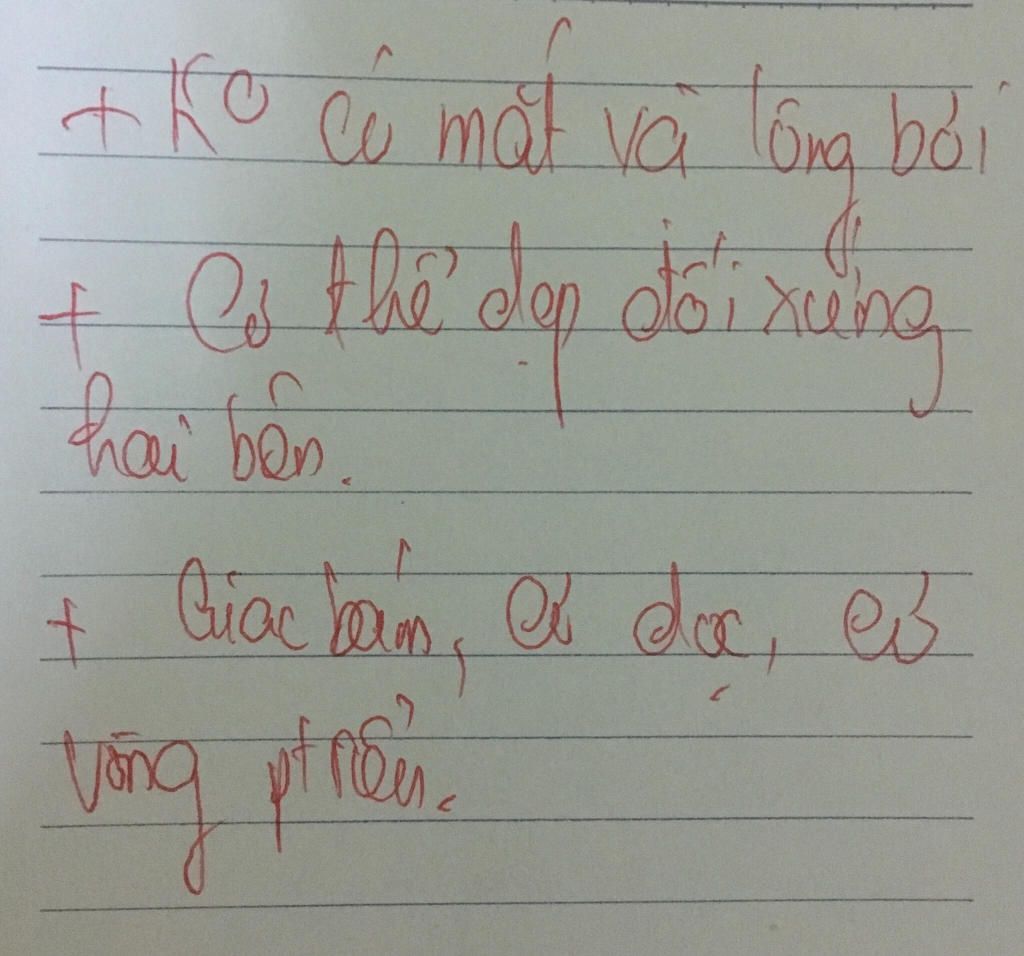 + Ko có mắt và lông bơi
+ Cơ thể dẹp đối xứng
hai bên.
+ Giác bám, cơ dọc, cơ
vòng ptriển.